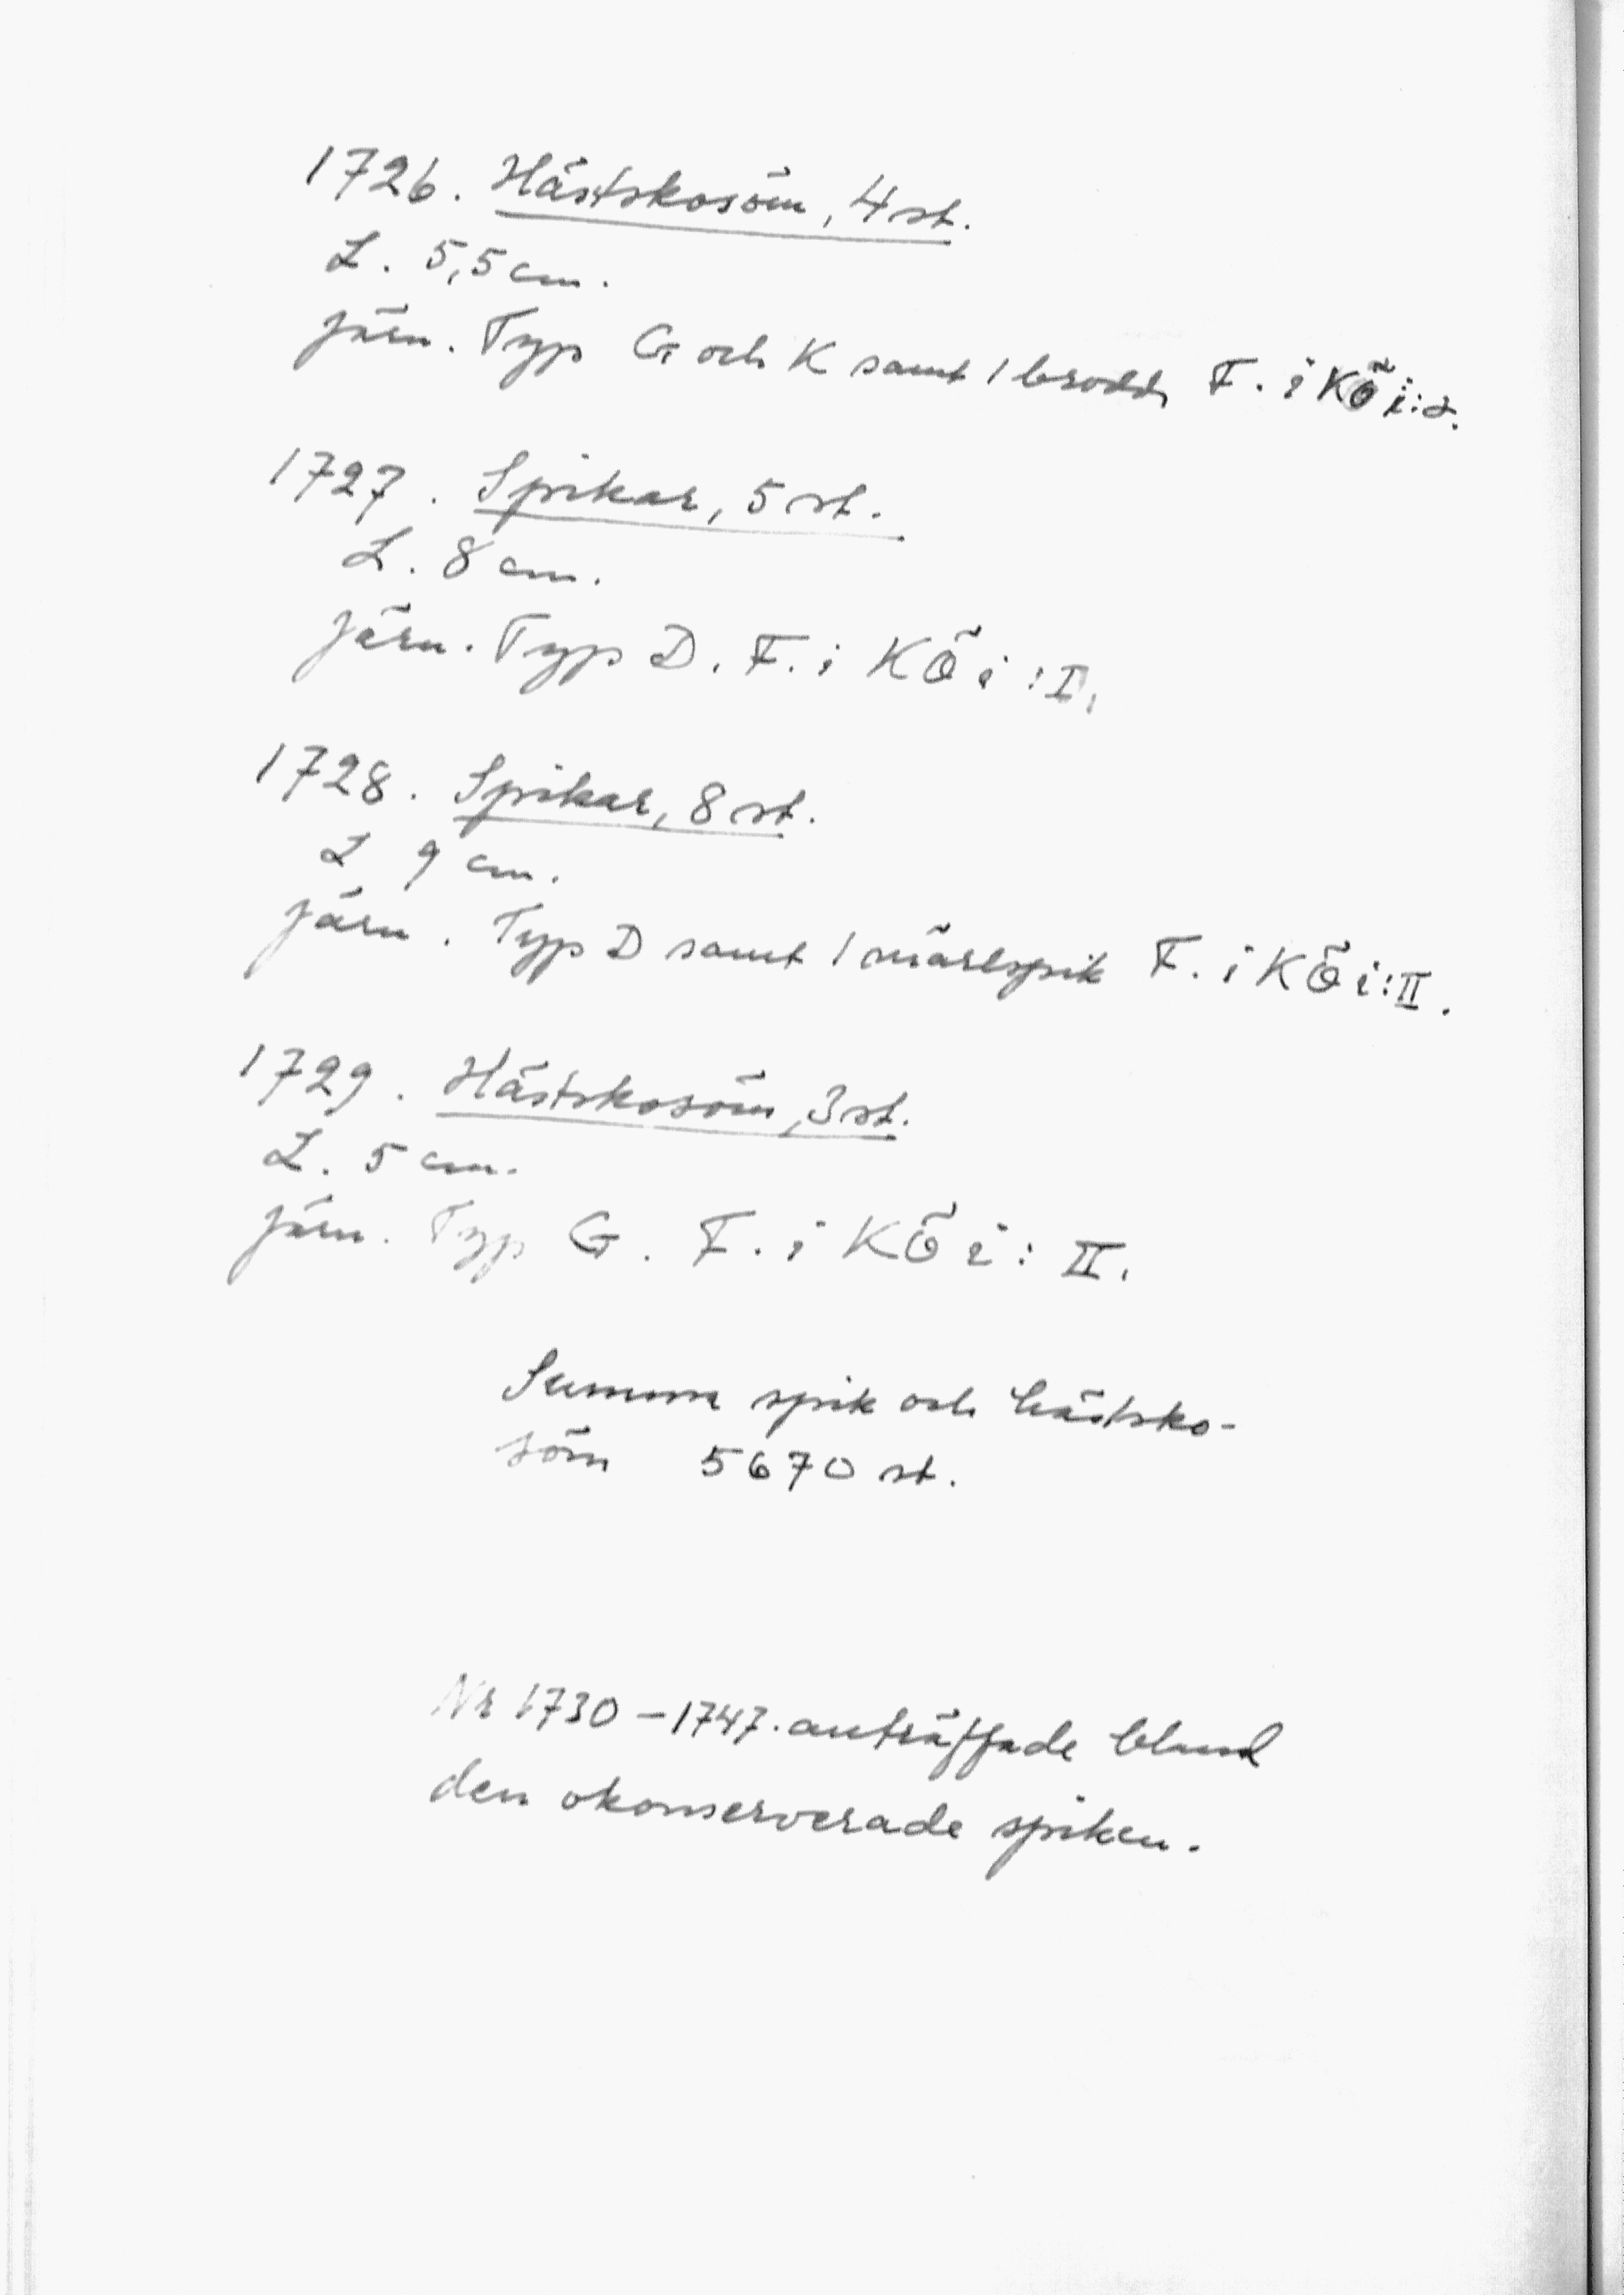 1726. Hästskosöm, 4 st.
L. 5,5 cm.
Järn. Typ G och K samt 1 brodd, F. i KÖ i:2.
1727. Spikar, 5 st.
L. 8 cm.
Järn. Typ D. F. i KÖ i:I.
1728. Spikar, 8 st.
L 9 cm.
Järn. Typ D samt 1 märlspik F. i KÖ i:II.
1729. Hästskosöm, 3 st.
L. 5 cm.
Järn. Typ G. F. i KÖ i: II.
Summa spik och hästsko-
söm 5670 st.
Nr 1730 – 1747. anträffade bland
den okonserverade spiken.